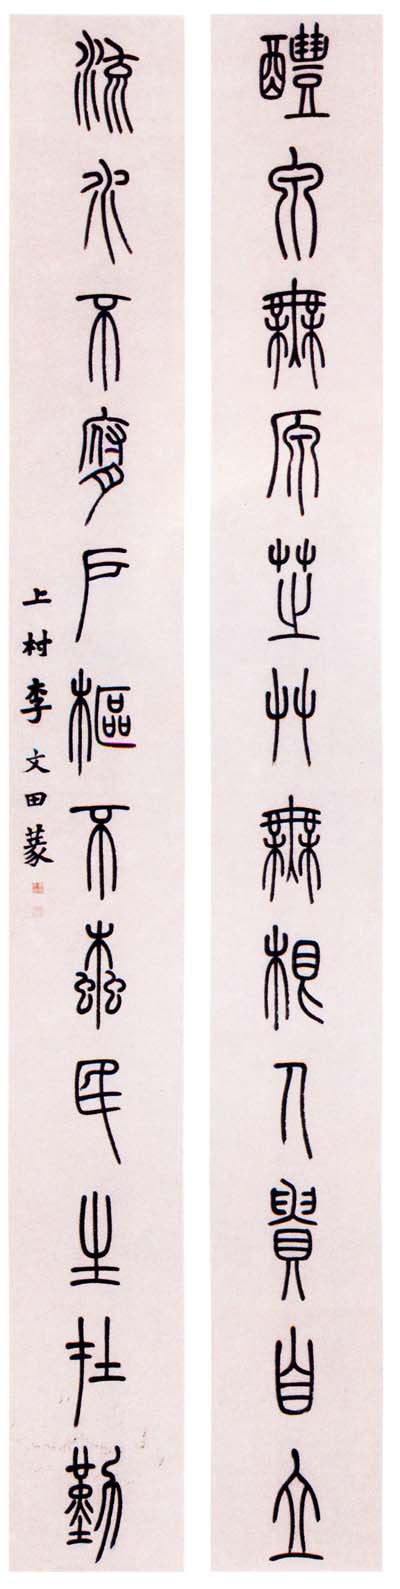 醴泉無原芝艸無根人貴自立
流水不腐戶樞不蠹民生在勤
上村李文田篆